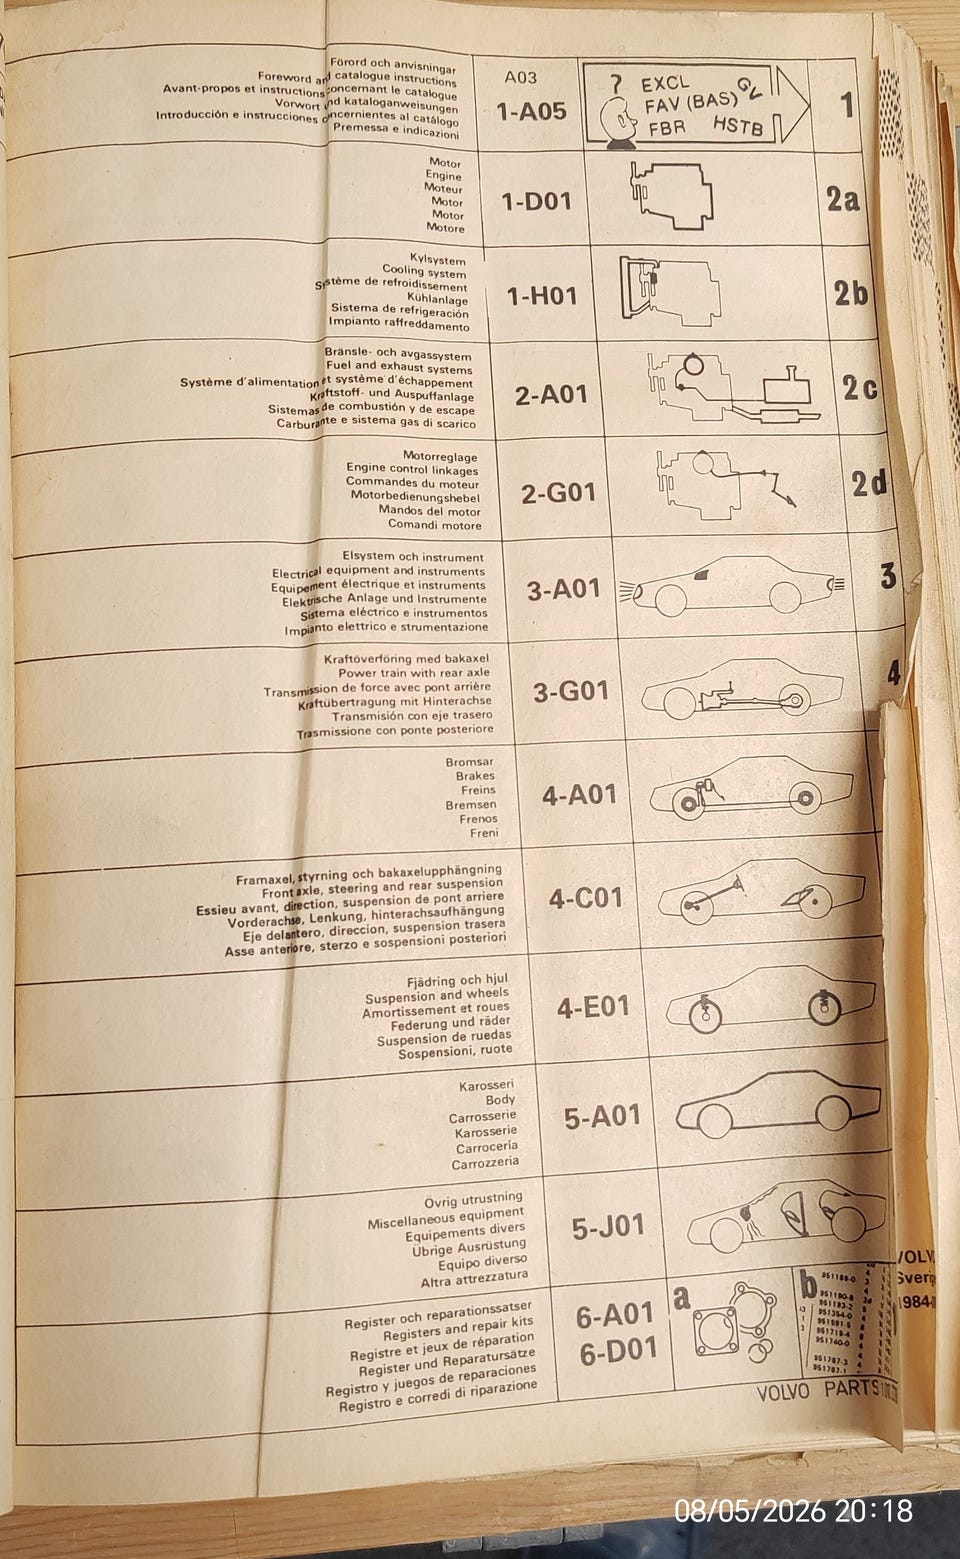 Förord och anvisningar
Foreword and catalogue instructions
Avant-propos et instructions concernant le catalogue
Vorwort und kataloganweisungen
Introducción e instrucciones concernientes al catálogo
Premessa e indicazioni
A03
1-A05
? EXCL GL
FAV (BAS)
FBR HSTB
1
Motor
Engine
Moteur
Motor
Motor
Motore
1-D01
2a
Kylsystem
Cooling system
Système de refroidissement
Kühlanlage
Sistema de refrigeración
Impianto raffreddamento
1-H01
2b
Bränsle- och avgassystem
Fuel and exhaust systems
Système d'alimentation et système d'échappement
Kraftstoff- und Auspuffanlage
Sistemas de combustión y de escape
Carburante e sistema gas di scarico
2-A01
2c
Motorreglage
Engine control linkages
Commandes du moteur
Motorbedienungshebel
Mandos del motor
Comandi motore
2-G01
2d
Elsystem och instrument
Electrical equipment and instruments
Equipement électrique et instruments
Elektrische Anlage und Instrumente
Sistema eléctrico e instrumentos
Impianto elettrico e strumentazione
3-A01
3
Kraftöverföring med bakaxel
Power train with rear axle
Transmission de force avec pont arrière
Kraftübertragung mit Hinterachse
Transmisión con eje trasero
Trasmissione con ponte posteriore
3-G01
4
Bromsar
Brakes
Freins
Bremsen
Frenos
Freni
4-A01
Framaxel, styrning och bakaxelupphängning
Front axle, steering and rear suspension
Essieu avant, direction, suspension de pont arriere
Vorderachse, Lenkung, hinterachsaufhängung
Eje delantero, direccion, suspension trasera
Asse anteriore, sterzo e sospensioni posteriori
4-C01
Fjädring och hjul
Suspension and wheels
Amortissement et roues
Federung und räder
Suspension de ruedas
Sospensioni, ruote
4-E01
Karosseri
Body
Carrosserie
Karosserie
Carrocería
Carrozzeria
5-A01
Övrig utrustning
Miscellaneous equipment
Equipements divers
Übrige Ausrüstung
Equipo diverso
Altra attrezzatura
5-J01
Register och reparationssatser
Registers and repair kits
Registre et jeux de réparation
Register und Reparatursätze
Registro y juegos de reparaciones
Registro e corredi di riparazione
6-A01
6-D01
a
b
951188-0
951190-8
951193-2
951354-0
951718-4
951740-0
951787-3
951787-1
VOLVO PARTS
08/05/2026 20:18